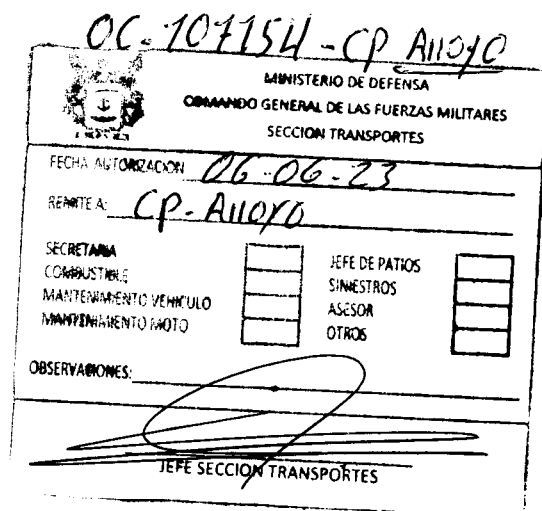 OC-107154-CP Arroyo
MINISTERIO DE DEFENSA
COMANDO GENERAL DE LAS FUERZAS MILITARES
SECCION TRANSPORTES
FECHA AUTORIZACION 06-06-23
REMITE A: CP-Arroyo
SECRETARIA
COMBUSTIBLE
MANTENIMIENTO VEHICULO
MANTENIMIENTO MOTO
JEFE DE PATIOS
SINIESTROS
ASESOR
OTROS
OBSERVACIONES:
JEFE SECCION TRANSPORTES